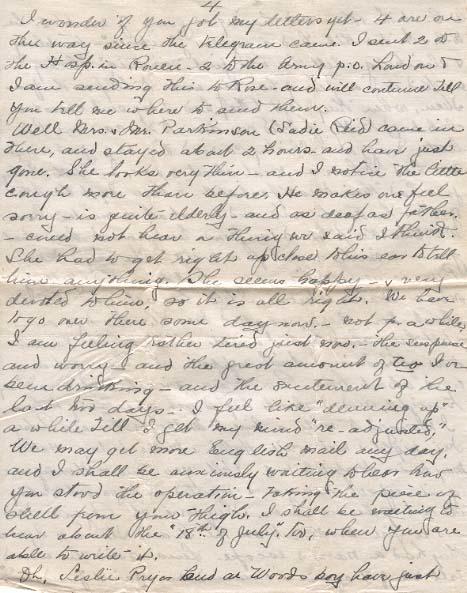 4
I wonder if you got my letters yet - 4 are on
their way since the telegram came. I sent 2 to
the Hosp. in Rouen - 2 to the Army P.O. London &
I am sending this to Rose - and will continue till
you tell me where to send them.
Well Mrs. & Mr. Parkinson (Sadie Reid) came in
there, and stayed about 2 hours - and have just
gone. She looks very thin - and I notice the little
cough more than before. He makes one feel
sorry - is quite elderly - and as deaf as father.
- could not hear a thing we said I think.
She had to get right up close to his ear to tell
him anything. She seems happy - & very
devoted to him, so it is all right. We have
to go over there some day now. - not for a while,
I am feeling rather tired just now. - the suspense
and worry - and the great amount of tea I've
been drinking - and the excitement of the
last two days. - I feel like "
up"
a while till I get my mind "re-adjusted,"
We may get more English mail any day,
and I shall be anxiously waiting to hear how
you stood the operation - taking the piece of
shell from your thigh. I shall be waiting to
hear about the "18th of July", too, when you are
able to write it.
Oh, Leslie Pryor and a Woods boy have just